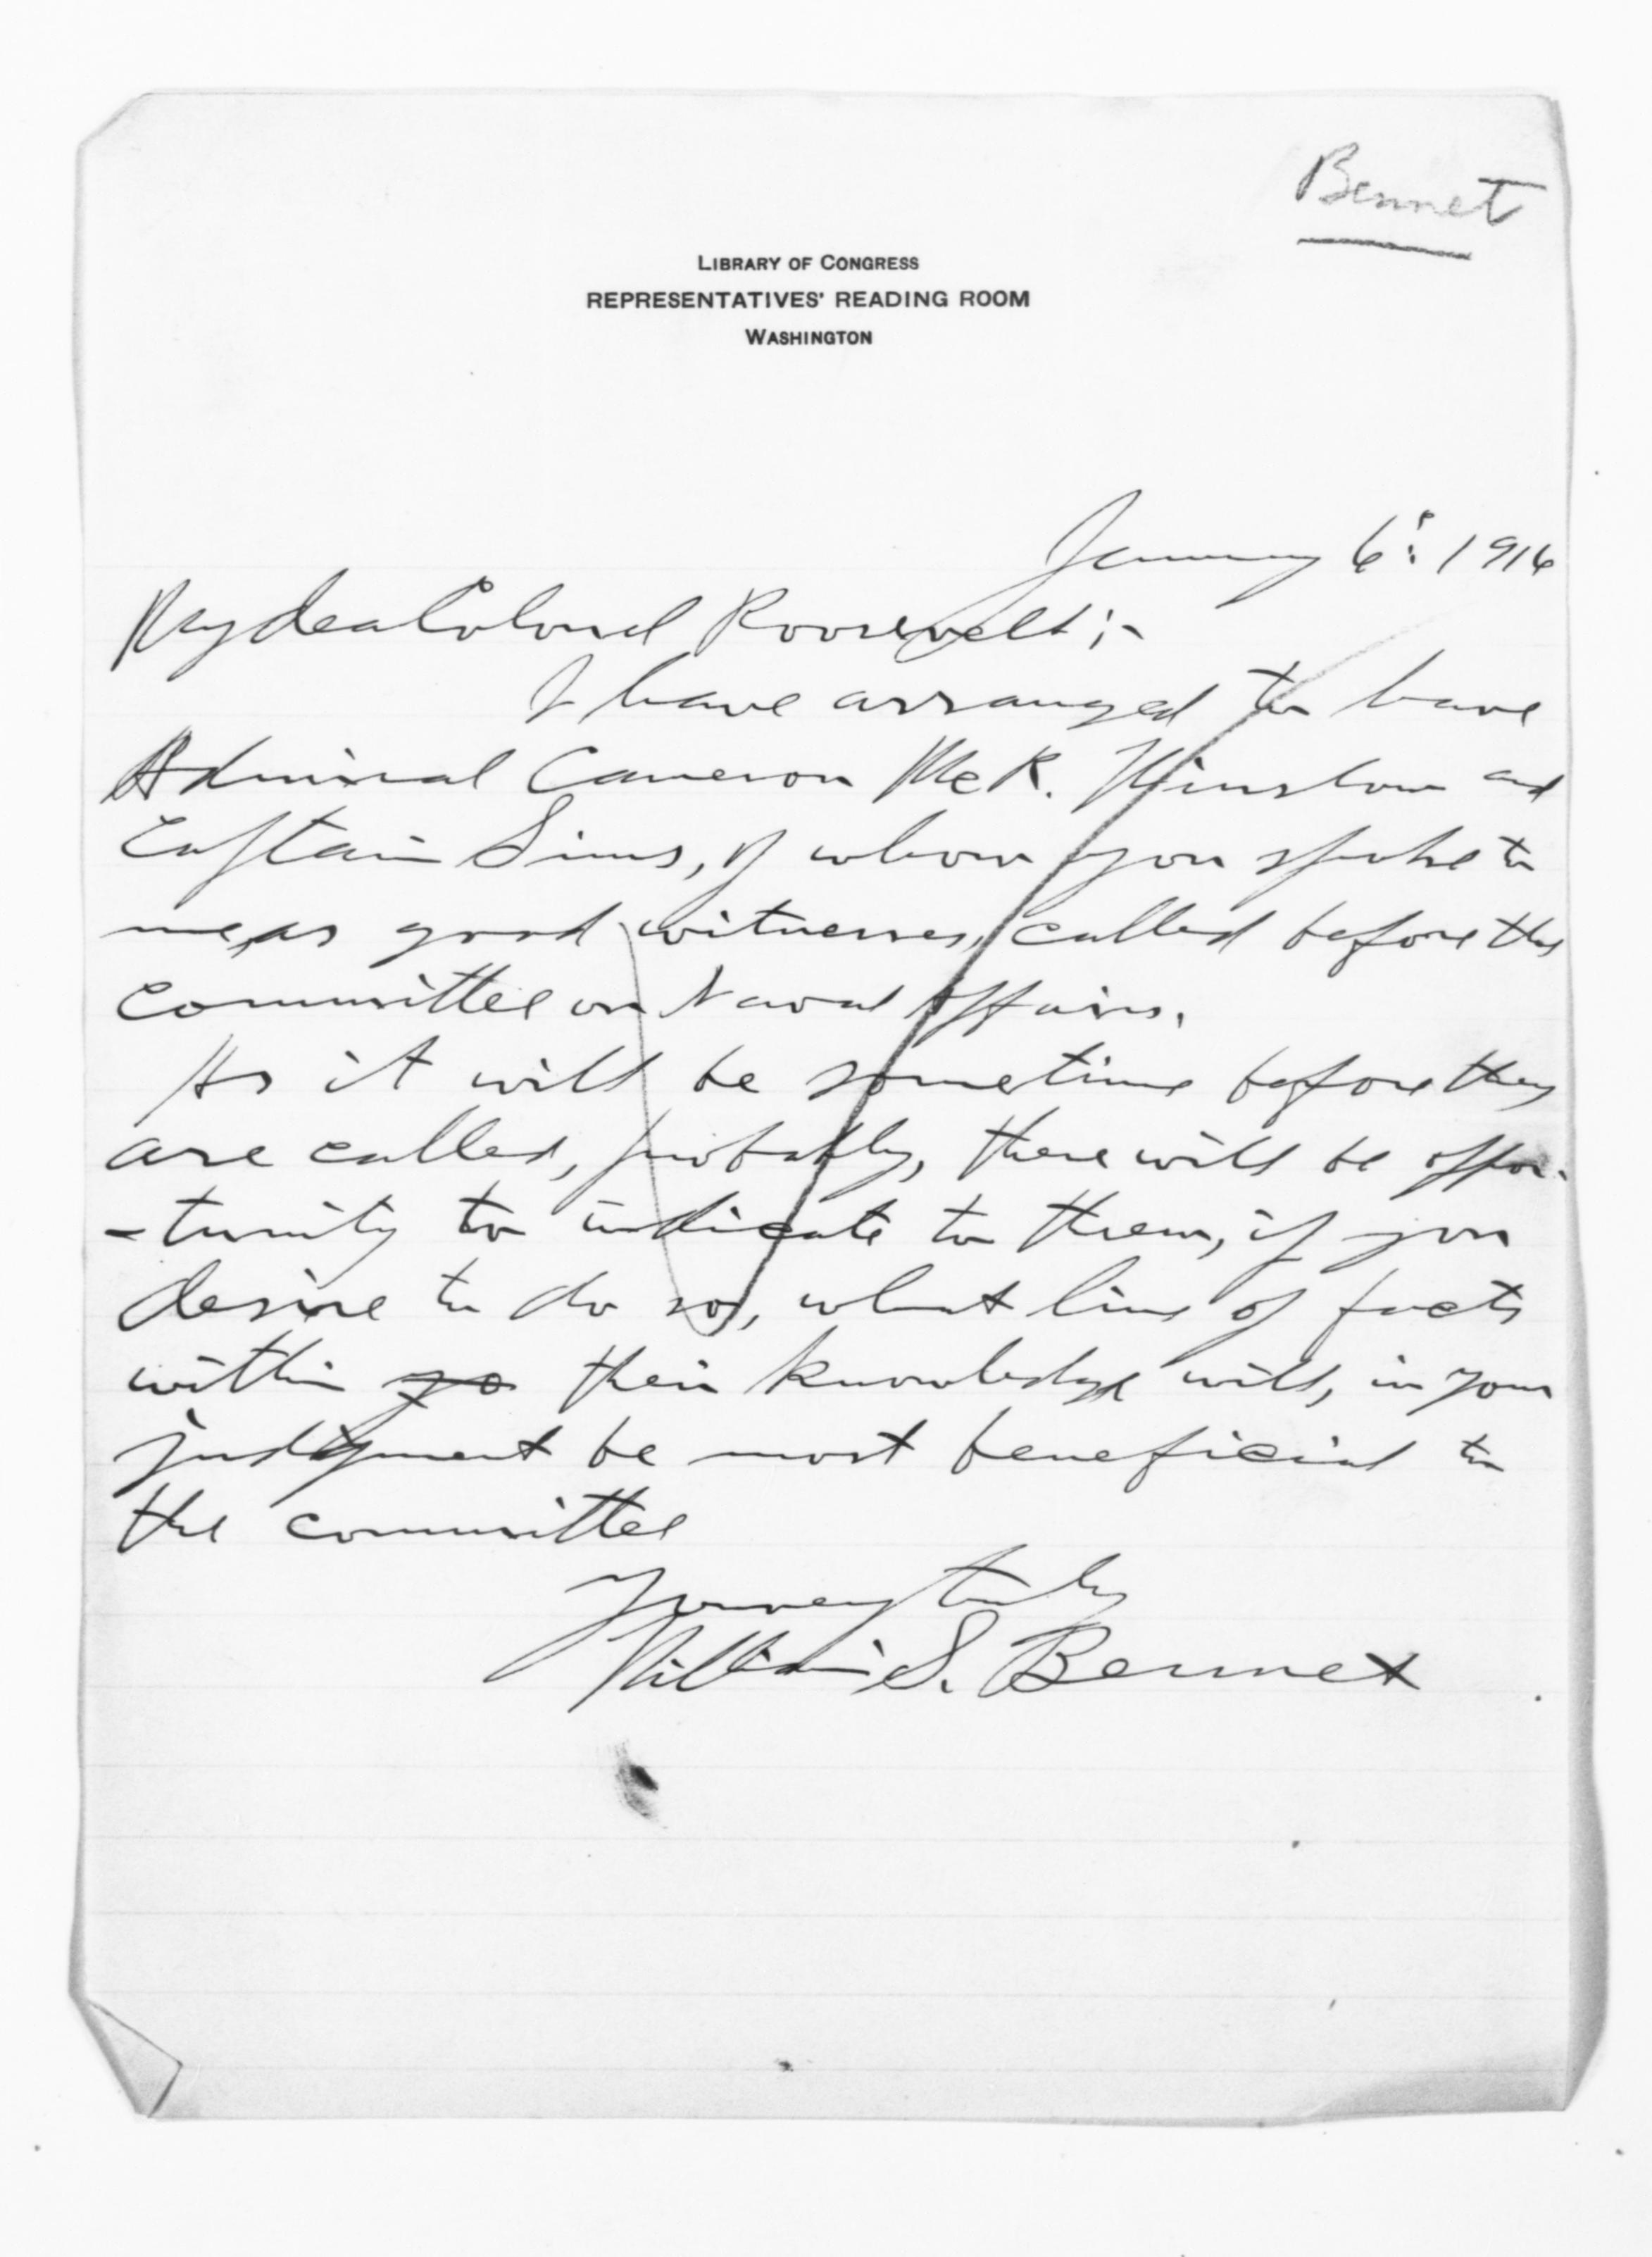 Bennet
LIBRARY OF CONGRESS
REPRESENTATIVES' READING ROOM
WASHINGTON
January 6: 1916
My dear Colonel Roosevelt:-
I have arranged to have
Admiral Cameron McR. Winslow and
Captain Sims, of whom you spoke to
me, as good witnesses, called before the
Committee on Naval Affairs.
As it will be sometime before they
are called, probably, there will be oppor-
-tunity to indicate to them, if you
desire to do so, what line of facts
within yo their knowledge will, in your
judgment be most beneficial to
the committee
Yours very truly
William S. Bennet